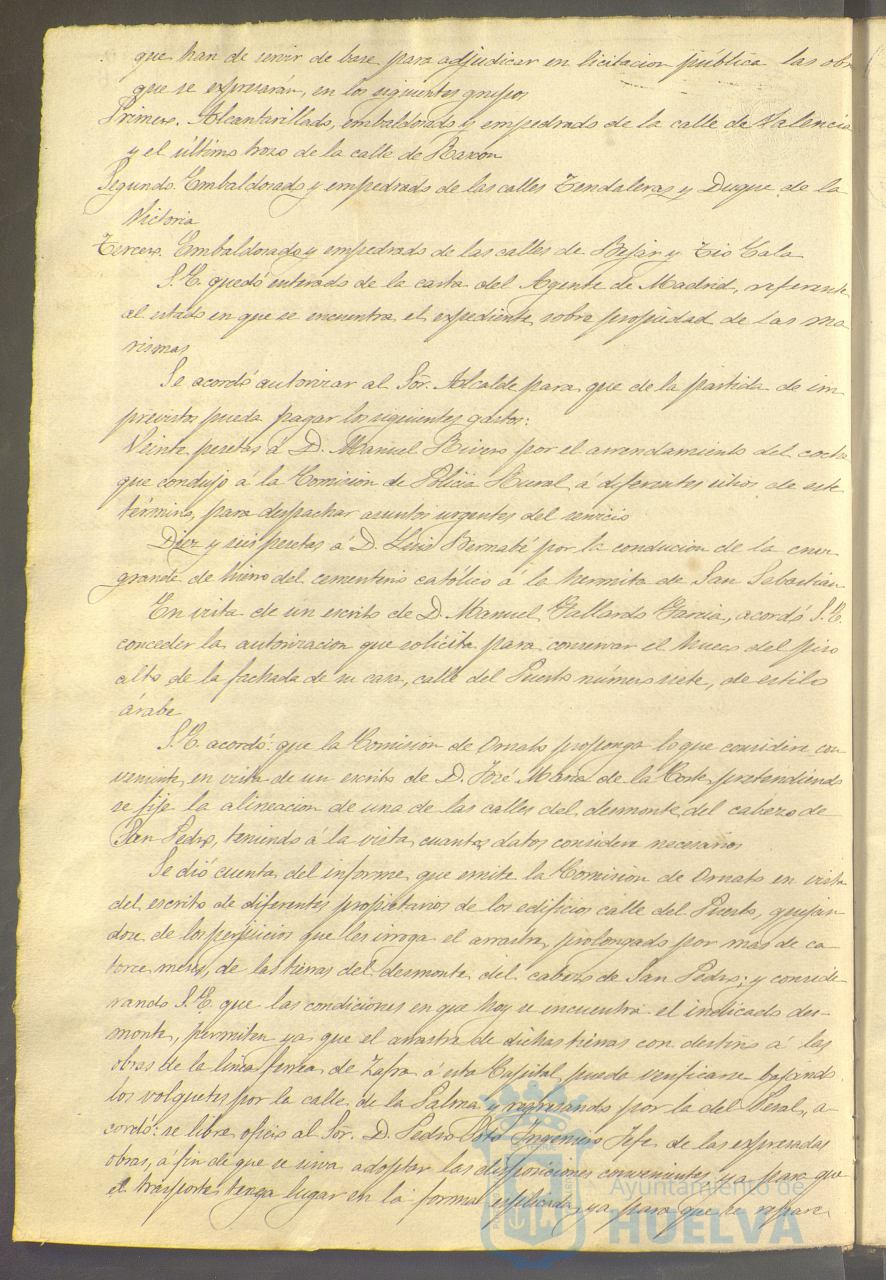 que han de servir de base para adjudicar en licitacion pública las obr
que se expresarán, en los siguientes grupos
Primero. Alcantarillado, embaldosado y empedrado de la calle de Valencia
y el último trozo de la calle de Rascon
Segundo. Embaldosado y empedrado de las calles Tendaleras y Duque de la
Victoria
Tercero. Embaldosado y empedrado de las calles de Bejar y Tio Cala
S.E. quedó enterado de la carta del Agente de Madrid, referente
al estado en que se encuentra el expediente sobre propiedad de las ma
rismas
Se acordó autorizar al Sor. Alcalde para que de la partida de im
previstos pueda pagar los siguientes gastos:
Veinte pesetas á D. Manuel Rivero por el arrendamiento del coche
que condujo á la Comision de Policia Rural á diferentes sitios de este
término, para despachar asuntos urgentes del servicio
Diez y seis pesetas á D. Luis Bernabé por la conducion de la cruz
grande de hierro del cementerio católico á la hermita de San Sebastian
En vista de un escrito de D. Manuel Gallardo Garcia, acordó S.E.
conceder la autorizacion que solicita para conservar el hueco del piso
alto de la fachada de su casa, calle del Puerto número siete, de estilo
árabe
S.E. acordó: que la Comision de Ornato proponga lo que considere con
veniente, en vista de un escrito de D. José Maria de la Corte, pretendiendo
se fije la alineacion de una de las calles del desmonte del cabezo de
San Pedro, teniendo á la vista cuantos datos considere necesarios
Se dió cuenta del informe que emite la Comision de Ornato en vista
del escrito de diferentes propietarios de los edificios calle del Puerto, quejan
dose de los perjuicios que les irroga el arrastre, prolongado por mas de ca
torce meses, de las tierras del desmonte del cabezo de San Pedro; y conside
rando S.E. que las condiciones en que hoy se encuentra el indicado des
monte, permiten ya que el arrastre de dichas tierras con destino á las
obras de la linea ferrea de Zafra á esta Capital pueda verificarse bajando
los volquetes por la calle de la Palma y regresando por la del Peral, a-
cordó: se libre oficio al Sor. D. Pedro Soto Ingeniero Jefe de las expresadas
obras, á fin de que se sirva adoptar las disposiciones convenientes ya para que
el trasporte tenga lugar en la forma esplicada, ya para que se repare
Ayuntamiento de
HUELVA